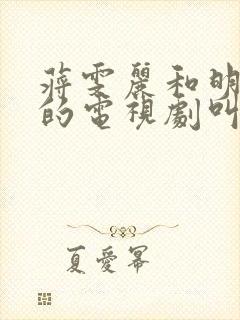 蔣雯麗和明
的電視劇叫
夏愛寡